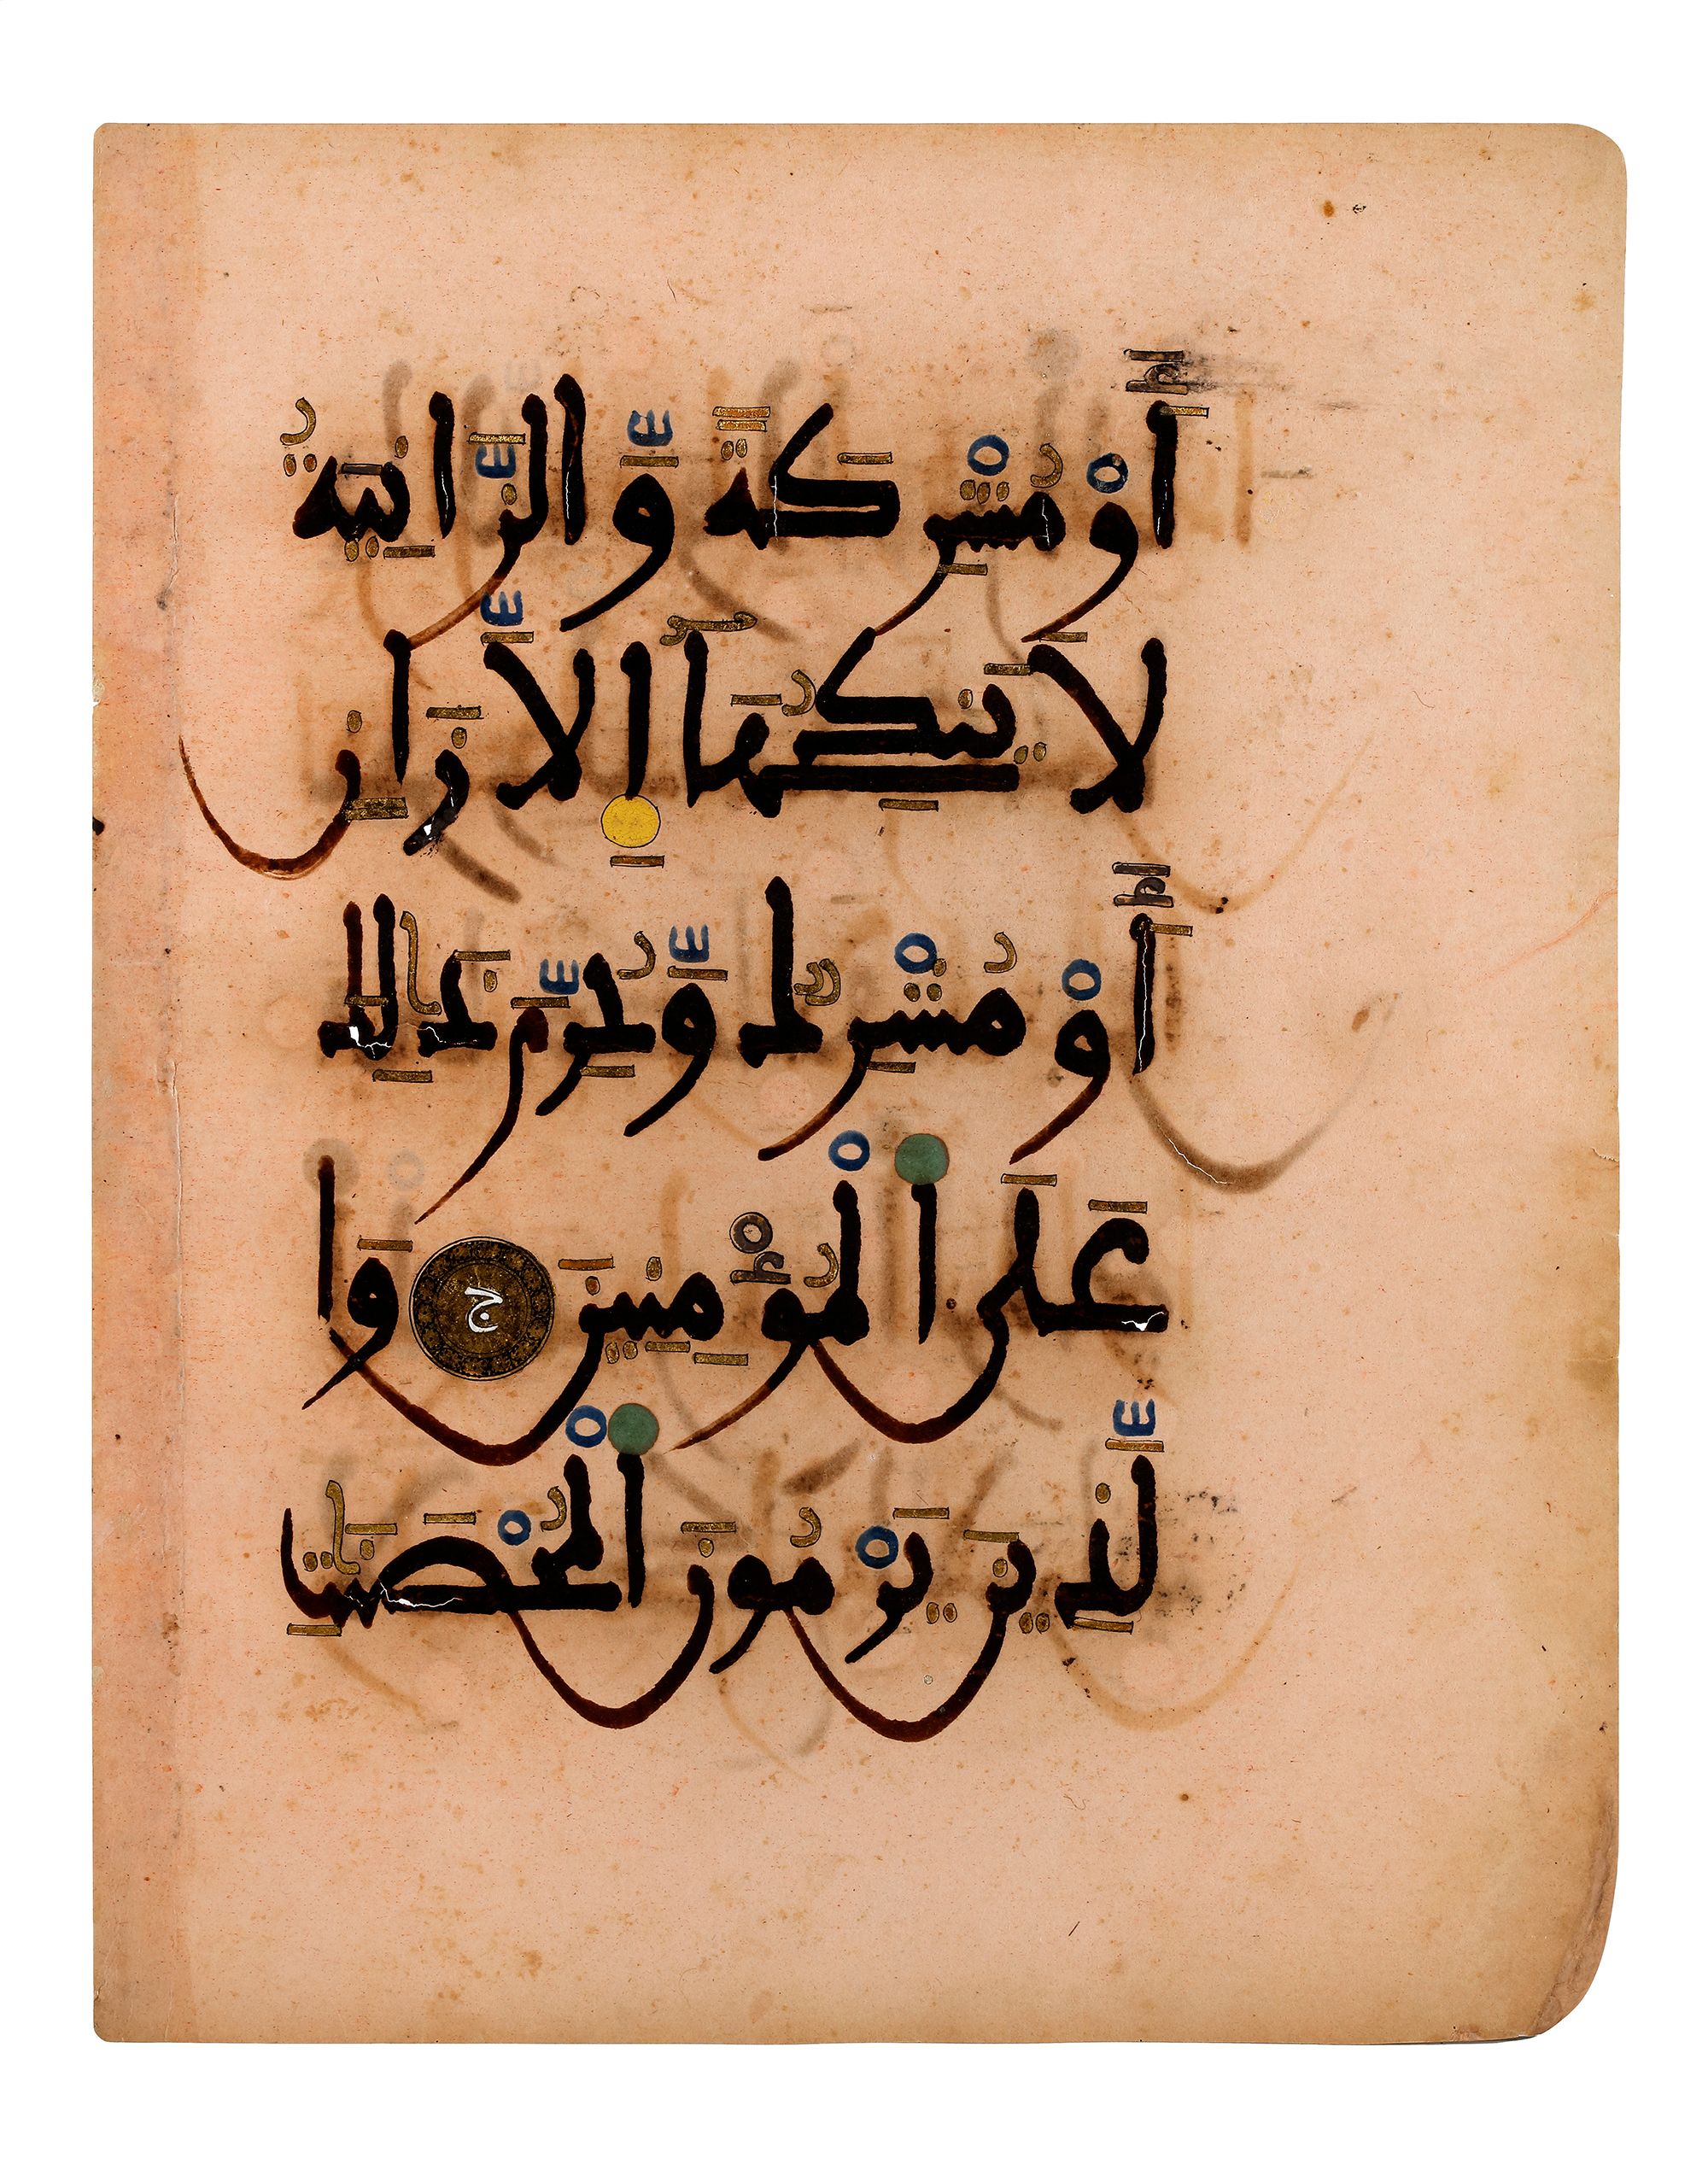 أَوْ مُشْرِكَةً وَّالزَّانِيَةُ
لَا يَنكِحُهَآ إِلَّا زَانٍ
أَوْ مُشْرِكٌ وَّحُرِّمَ ذَٰلِكَ
عَلَى الْمُؤْمِنِينَ ج وَا
لَّذِينَ يَرْمُونَ الْمُحْصَنَٰتِ